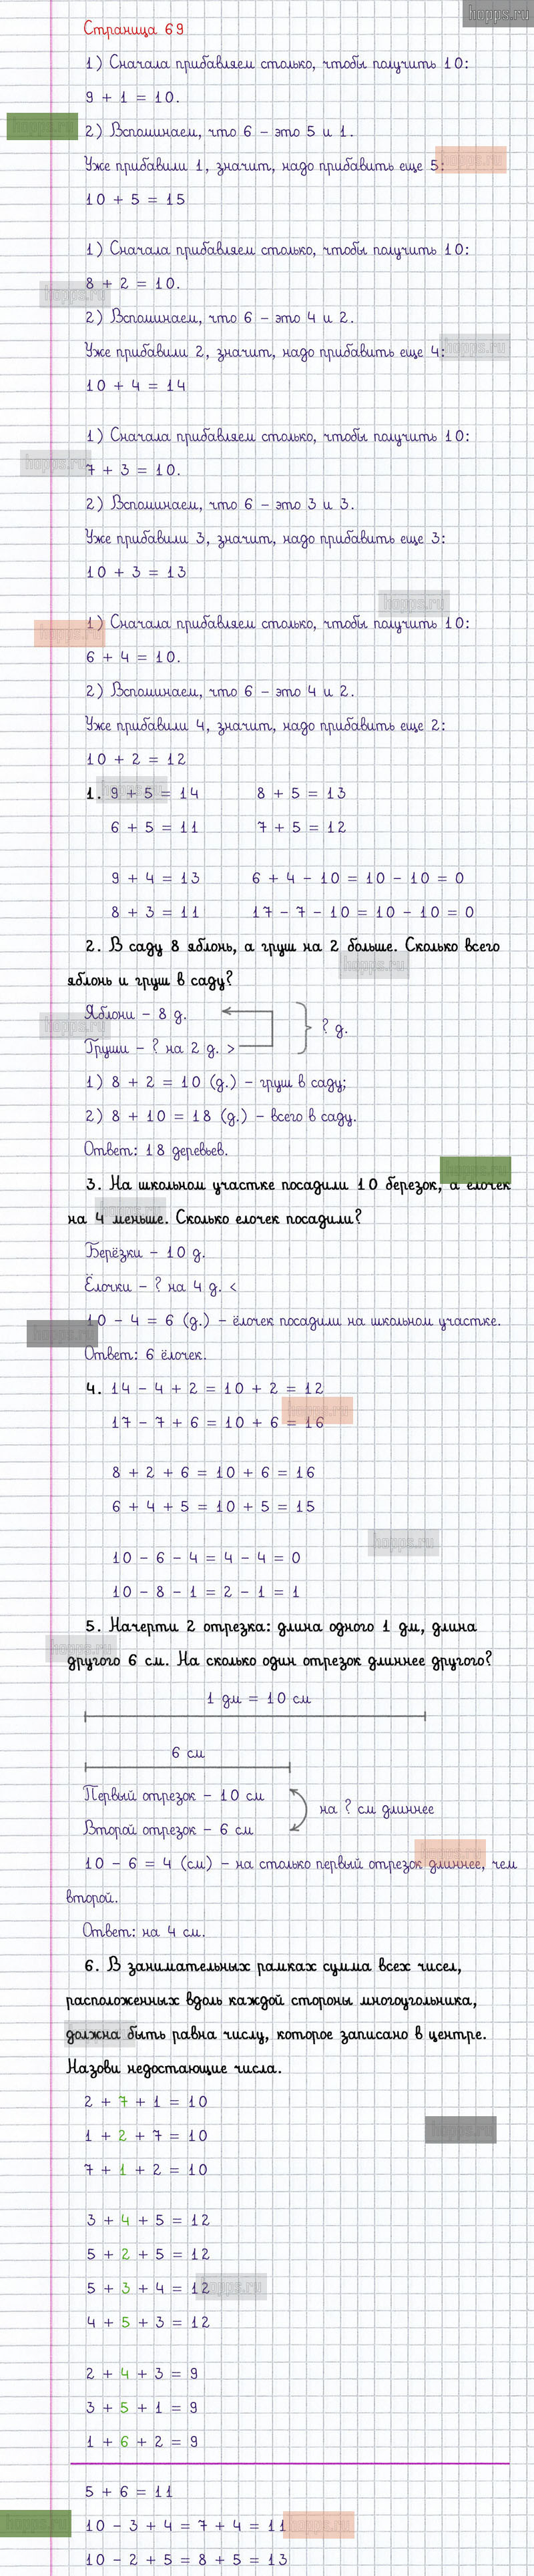 hopps.ru
Страница 69
1) Сначала прибавляем столько, чтобы получить 10:
9 + 1 = 10.
hopps.ru
2) Вспоминаем, что 6 – это 5 и 1.
Уже прибавили 1, значит, надо прибавить еще 5:
hopps.ru
10 + 5 = 15
1) Сначала прибавляем столько, чтобы получить 10:
8 + 2 = 10.
hopps.ru
2) Вспоминаем, что 6 – это 4 и 2.
Уже прибавили 2, значит, надо прибавить еще 4:
hopps.ru
10 + 4 = 14
1) Сначала прибавляем столько, чтобы получить 10:
hopps.ru
7 + 3 = 10.
2) Вспоминаем, что 6 – это 3 и 3.
Уже прибавили 3, значит, надо прибавить еще 3:
10 + 3 = 13
hopps.ru
1) Сначала прибавляем столько, чтобы получить 10:
hopps.ru
6 + 4 = 10.
2) Вспоминаем, что 6 – это 4 и 2.
Уже прибавили 4, значит, надо прибавить еще 2:
10 + 2 = 12
1. 9 + 5 = 14 8 + 5 = 13
hopps.ru
6 + 5 = 11 7 + 5 = 12
9 + 4 = 13 6 + 4 – 10 = 10 – 10 = 0
8 + 3 = 11 17 – 7 – 10 = 10 – 10 = 0
2. В саду 8 яблонь, а груш на 2 больше. Сколько всего
hopps.ru
яблонь и груш в саду?
Яблони – 8 д.
hopps.ru
? д.
Груши – ? на 2 д. >
1) 8 + 2 = 10 (д.) – груш в саду;
2) 8 + 10 = 18 (д.) – всего в саду.
Ответ: 18 деревьев.
hopps.ru
3. На школьном участке посадили 10 березок, а елочек
hopps.ru
на 4 меньше. Сколько елочек посадили?
Берёзки – 10 д.
Ёлочки – ? на 4 д. <
10 – 4 = 6 (д.) – ёлочек посадили на школьном участке.
hopps.ru
Ответ: 6 ёлочек.
4. 14 – 4 + 2 = 10 + 2 = 12
hopps.ru
17 – 7 + 6 = 10 + 6 = 16
8 + 2 + 6 = 10 + 6 = 16
6 + 4 + 5 = 10 + 5 = 15
hopps.ru
10 – 6 – 4 = 4 – 4 = 0
10 – 8 – 1 = 2 – 1 = 1
5. Начерти 2 отрезка: длина одного 1 дм, длина
hopps.ru
другого 6 см. На сколько один отрезок длиннее другого?
1 дм = 10 см
6 см
Первый отрезок – 10 см
на ? см длиннее
Второй отрезок – 6 см
hopps.ru
10 – 6 = 4 (см) – на столько первый отрезок длиннее, чем
второй.
Ответ: на 4 см.
6. В занимательных рамках сумма всех чисел,
расположенных вдоль каждой стороны многоугольника,
hopps.ru
должна быть равна числу, которое записано в центре.
Назови недостающие числа.
2 + 7 + 1 = 10
hopps.ru
1 + 2 + 7 = 10
7 + 1 + 2 = 10
3 + 4 + 5 = 12
5 + 2 + 5 = 12
hopps.ru
5 + 3 + 4 = 12
4 + 5 + 3 = 12
2 + 4 + 3 = 9
3 + 5 + 1 = 9
1 + 6 + 2 = 9
5 + 6 = 11
hopps.ru
10 – 3 + 4 = 7 + 4 = 11
hopps.ru
10 – 2 + 5 = 8 + 5 = 13